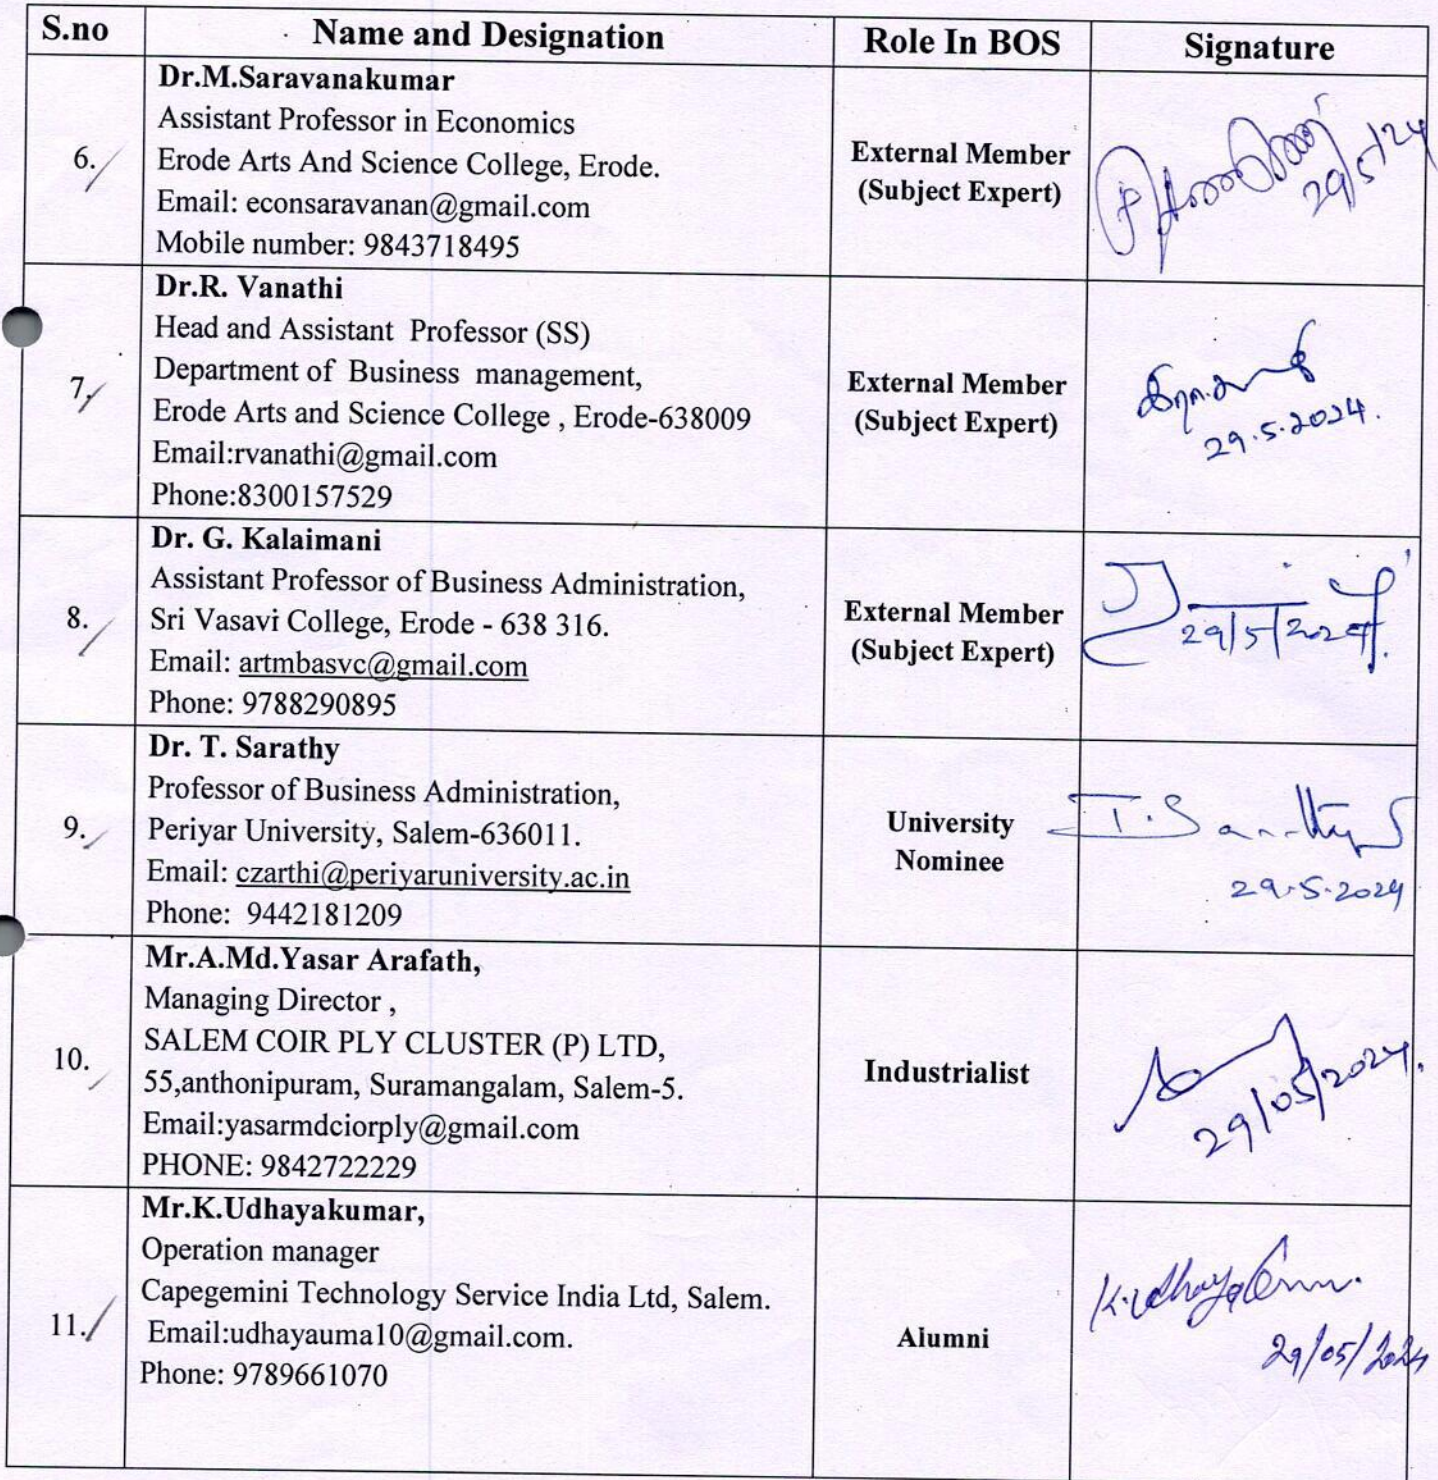 S.no Name and Designation Role In BOS Signature
6.
Dr.M.Saravanakumar
Assistant Professor in Economics
Erode Arts And Science College, Erode.
Email: econsaravanan@gmail.com
Mobile number: 9843718495
External Member
(Subject Expert)
29/5/24
7.
Dr.R. Vanathi
Head and Assistant Professor (SS)
Department of Business management,
Erode Arts and Science College , Erode-638009
Email:rvanathi@gmail.com
Phone:8300157529
External Member
(Subject Expert)
29.5.2024.
8.
Dr. G. Kalaimani
Assistant Professor of Business Administration,
Sri Vasavi College, Erode - 638 316.
Email: artmbasvc@gmail.com
Phone: 9788290895
External Member
(Subject Expert)
29/5/2024.
9.
Dr. T. Sarathy
Professor of Business Administration,
Periyar University, Salem-636011.
Email: czarthi@periyaruniversity.ac.in
Phone: 9442181209
University
Nominee
T.Sarathy
29.5.2024
10.
Mr.A.Md.Yasar Arafath,
Managing Director ,
SALEM COIR PLY CLUSTER (P) LTD,
55,anthonipuram, Suramangalam, Salem-5.
Email:yasarmdciorply@gmail.com
PHONE: 9842722229
Industrialist
29/05/2024.
11.
Mr.K.Udhayakumar,
Operation manager
Capegemini Technology Service India Ltd, Salem.
Email:udhayauma10@gmail.com.
Phone: 9789661070
Alumni
29/05/2024